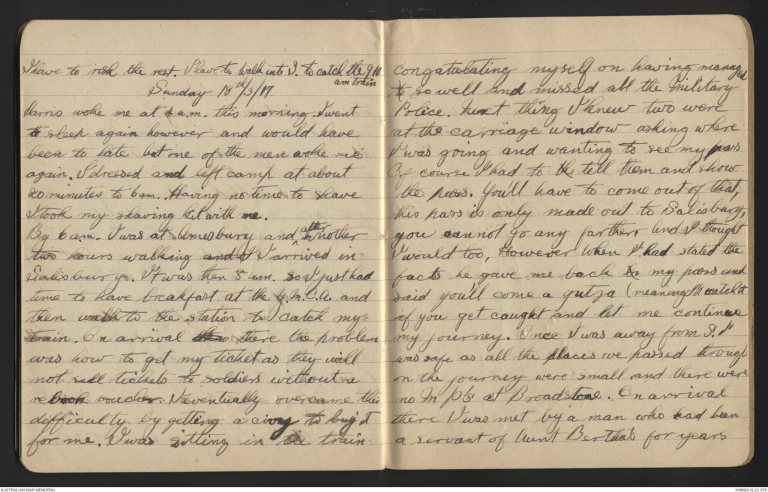 I have to risk the rest. I have to walk into S. to catch the 9
am train
Sunday 18th/3/17
Harris woke me at 5 a.m. this morning. I went
to sleep again however and would have
been to late but one of the men woke me
again. I dressed and left camp at about
20 minutes to 6 am. Having no time to shave
I took my shaving kit with me.
By 6 a.m. I was at Amesbury and, after another
two hours walking I arrived in
Salisbury. It was then 8 am. so I just had
time to have breakfast at the Y.M.C.A. and
then walk to the station to catch my
train. On arrival there the problem
was how to get my ticket as they will
not sell tickets to soldiers without a
voucher. I eventually overcame this
difficulty by getting a civvy to buy it
for me. I was sitting in the train
congatulating myself on having managed
to so well and missed all the Military
Police. Next thing I knew two were
at the carriage window asking where
I was going and wanting to see my pass
Of course I had to tell them and show
the pass. You'll have to come out of that,
this pass is only made out to Salisbury,
you cannot go any farther and I thought
I would too, However when I had stated the
facts he gave me back my pass and
said you'll come a gutza (meaning I'll catch it
if you get caught and let me continue
my journey. Once I was away from S. I
was safe as all the places we passed through
on the journey were small and there were
no M.P's at Broadstone. On arrival
there I was met by a man who had been
a servant of Aunt Bertha's for years
AUSTRALIAN WAR MEMORIAL